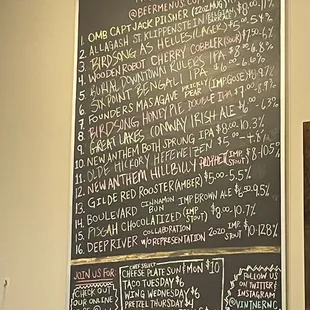 @BEERMENUS.CO
1. OMB CAPT JACK PILSNER (12OZ MUG)
2. ALLAGASH ST. KLIPPENSTEIN
3. BIRDSONG AS HELLES (LAGER) $6 - 5.4%
4. WOODEN ROBOT CHERRY COBBLER (SOUR) $7 - 6%
5. RURAL DOWNTOWN RULERS IPA $8 - 6.8%
6. SIXPOINT BENGALI IPA $6 - 6.6%
7. FOUNDERS MAS AGAVE PRICKLY PEAR (IMP. GOSE) $9 - 9.7%
8. BIRDSONG HONEY PIE DOUBLE IPA $7 - 8%
9. GREAT LAKES CONWAY IRISH ALE $6 - 6.3%
10. NEW ANTHEM BOTH SPRUNG IPA $8 - 10.3%
11. OLDE HICKORY HEFEWEIZEN $5 - 4.8%
12. NEW ANTHEM HILLBILLY PROPHET (IMP STOUT) $8 - 10.5%
13. GILDE RED ROOSTER (AMBER) $5.00 - 5.5%
14. BOULEVARD CINNAMON BUN IMP BROWN ALE $6.50 9.5%
15. PISGAH CHOCOLATIZED (IMP STOUT) $8.00 - 10.7%
16. DEEP RIVER COLLABORATION W/O REPRESENTATION 2020 IMP. STOUT $10 - 12.8%
JOIN US FOR:
CHECK OUT
OUR ONLINE
CHEF SELECT
CHEESE PLATE SUN & MON $10
TACO TUESDAY $6
WING WEDNESDAY $6
PRETZEL THURSDAY $4
FOLLOW US
ON TWITTER &
INSTAGRAM
@VINTNERNC